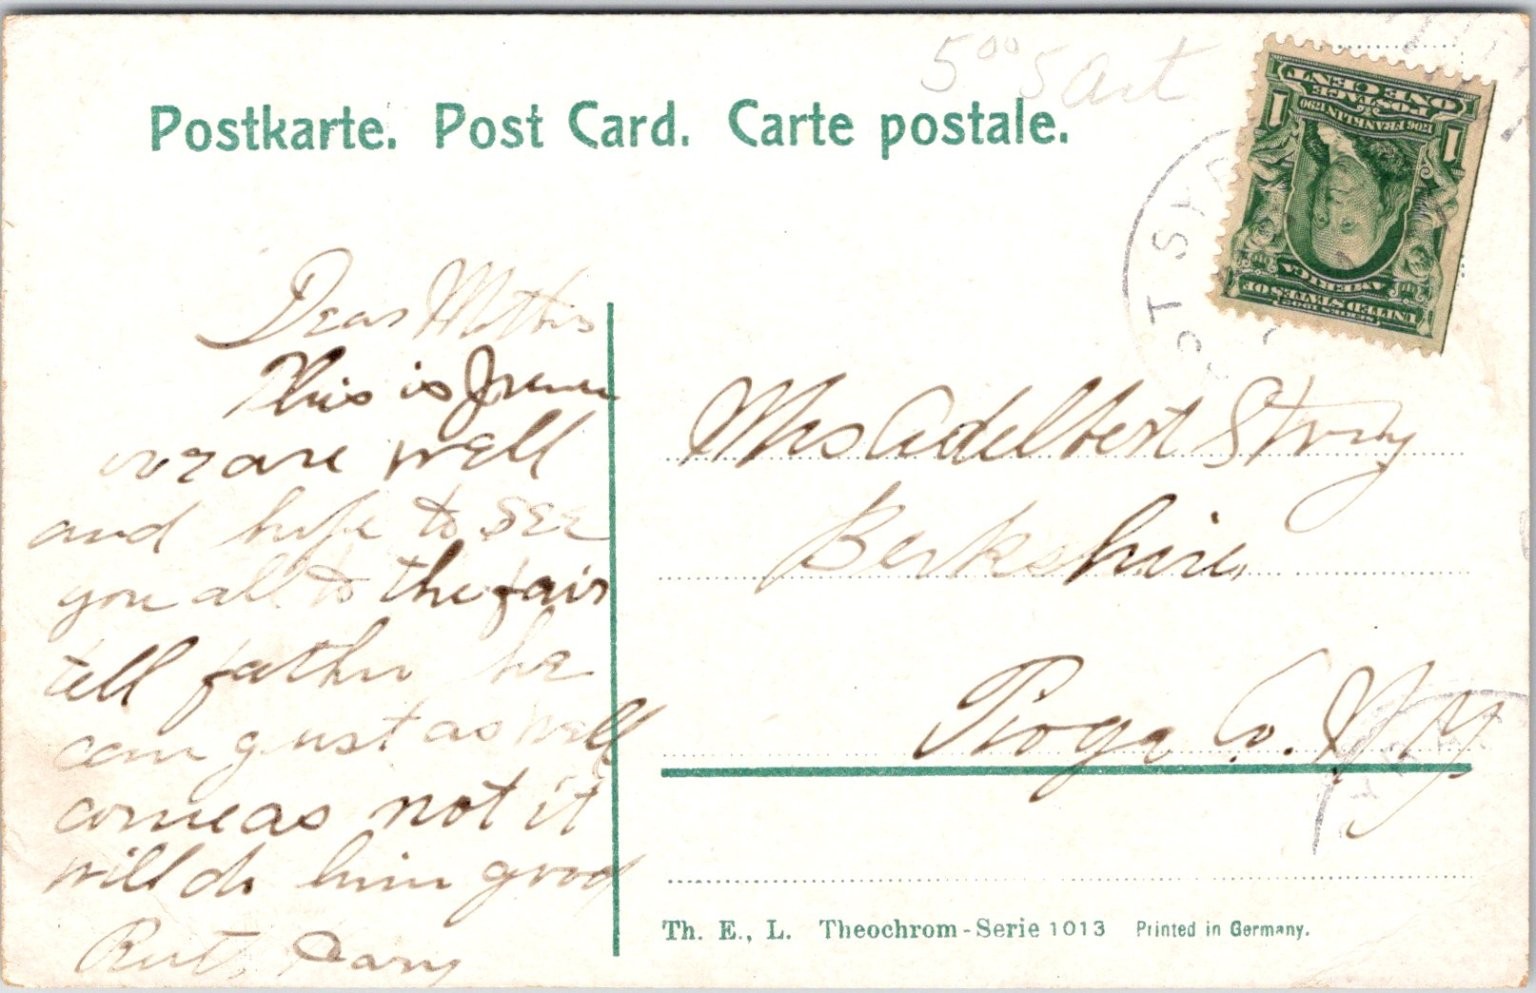 5⁰⁰ 5 Art
Postkarte. Post Card. Carte postale.
ONE CENT
POSTAGE
1706 FRANKLIN 1790
1 1
AMERICA
UNITED STATES OF
SERIES 1902
ST SY
Dear Mother
This is Irene
we are well
and hope to see
you all to the fair
tell father he
can gust as well
come as not it
will do him good
Mrs Adelbert Strong
Berkshire,
Tioga Co. N Y
Th. E., L. Theochrom-Serie 1013 Printed in Germany.